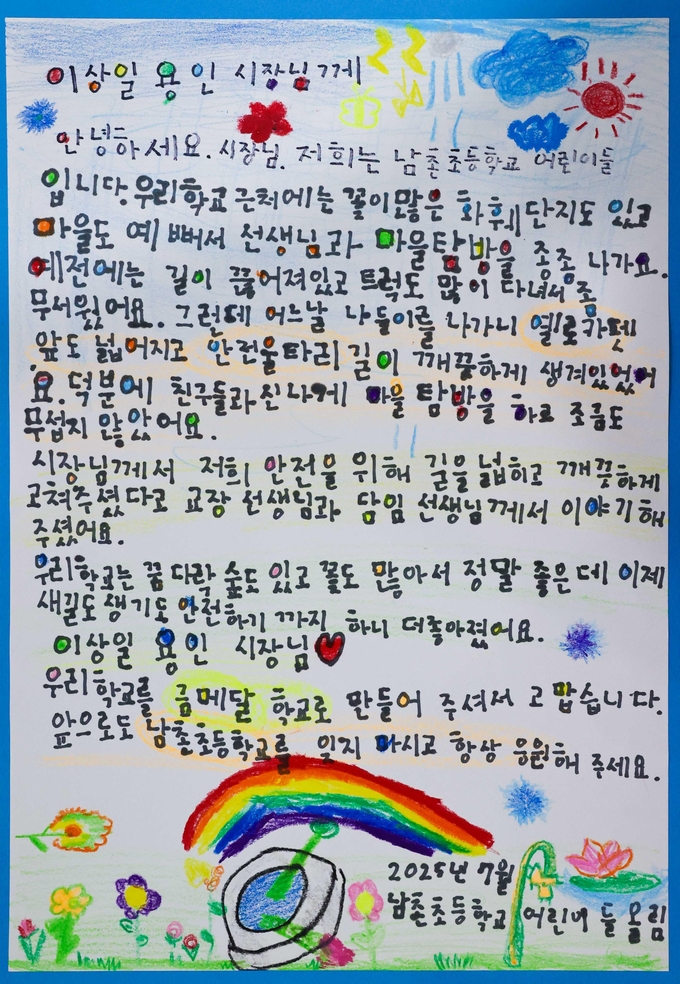 이상일 용인 시장님께
안녕하세요. 시장님. 저희는 남촌초등학교 어린이들
입니다. 우리학교 근처에는 꽃이 많은 화훼단지도 있고
마을도 예뻐서 선생님과 마을탐방을 종종 나가요.
예전에는 길이 끊어져있고 트럭도 많이 다녀서 좀
무서웠어요. 그런데 어느날 나들이를 나가니 옐로카펫
앞도 넓어지고 안전울타리 길이 깨끗하게 생겨있었어
요. 덕분에 친구들과 신나게 마을 탐방을 하고 조금도
무섭지 않았어요.
시장님께서 저희 안전을 위해 길을 넓히고 깨끗하게
고쳐주셨다고 교장 선생님과 담임 선생님께서 이야기해
주셨어요.
우리학교는 꿈 다락 숲도 있고 꽃도 많아서 정말 좋은데 이제
새길도 생기도 안전하기 까지 하니 더좋아졌어요.
이상일 용인 시장님
우리학교를 금메달 학교로 만들어 주셔서 고맙습니다.
앞으로도 남촌초등학교를 잊지 마시고 항상 응원해 주세요.
2025년 7월
남촌초등학교 어린이 들 올림